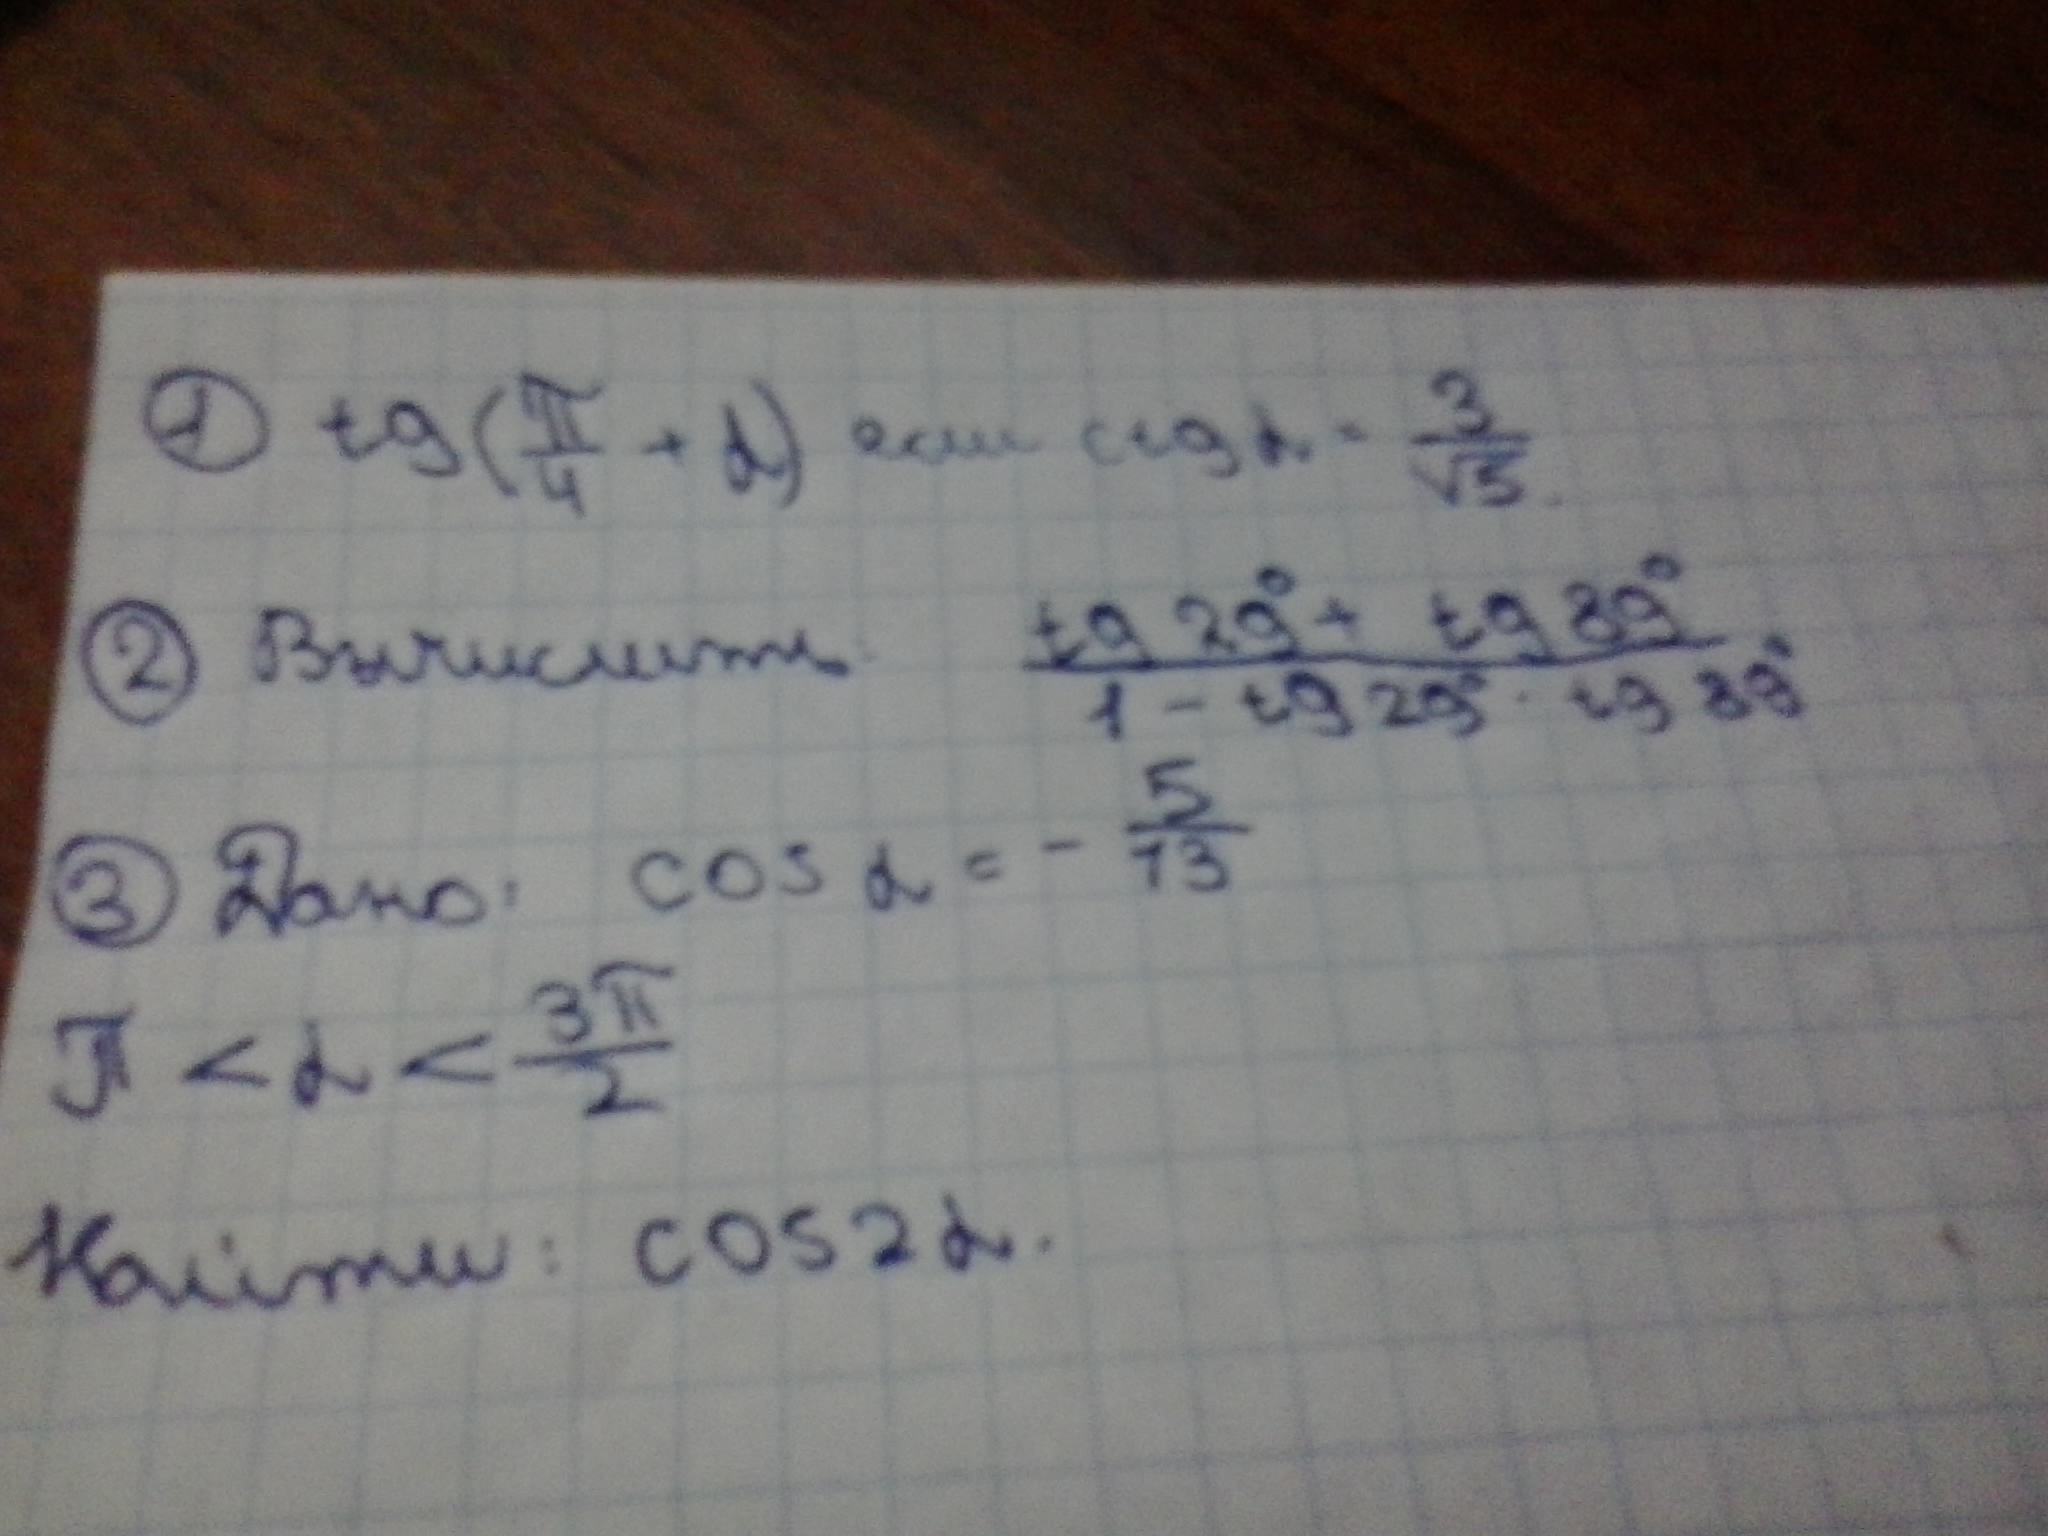 ① tg(π/4 + α) если ctg α = 3/√5.
② Вычислить: (tg 29° + tg 89°)/(1 - tg 29° · tg 89°)
③ Дано: cos α = - 5/13
π < α < 3π/2
Найти: cos 2α.